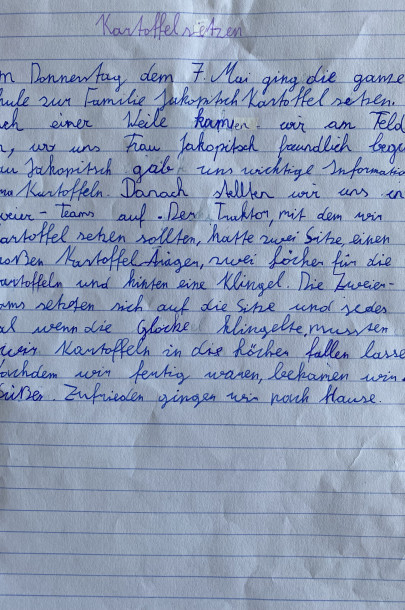 Kartoffelsetzen
m Donnerstag dem 7. Mai ging die ganze
hule zur Familie Jakopitsch Kartoffel setzen.
ch einer Weile kamen wir am Feld
n, wo uns Frau Jakopitsch freundlich begr
au Jakopitsch gab uns wichtige Informatio
ma Kartoffeln. Danach stellten wir uns in
weier-Teams auf. Der Traktor, mit dem wir
artoffel setzen sollten, hatte zwei Sitze, einen
roßen Kartoffel-Träger, zwei Löcher für die
artoffeln und hinten eine Klingel. Die Zweier-
ams setzten sich auf die Sitze und jedes
al wenn die Glocke klingelte, mussten
wir Kartoffeln in die Löcher fallen lasse
achdem wir fertig waren, bekamen wir
üßes. Zufrieden gingen wir nach Hause.